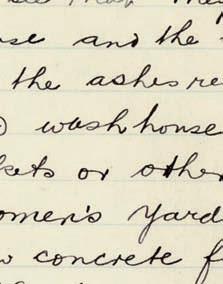 se and the
the ashes re
) wash house
kets or other
omen's Yard
w concrete f